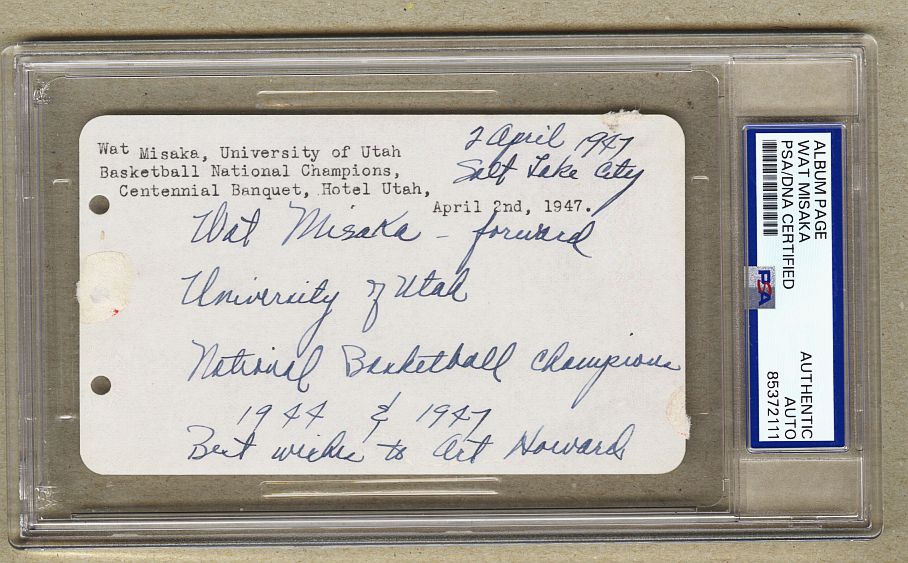 2 April 1947
Salt Lake City
Wat Misaka, University of Utah
Basketball National Champions,
Centennial Banquet, Hotel Utah,
April 2nd, 1947.
Wat Misaka - forward
University of Utah
National Basketball Champions
1944 & 1947
Best wishes to Art Howard
ALBUM PAGE
WAT MISAKA
PSA/DNA CERTIFIED
AUTHENTIC
AUTO
85372111
PSA